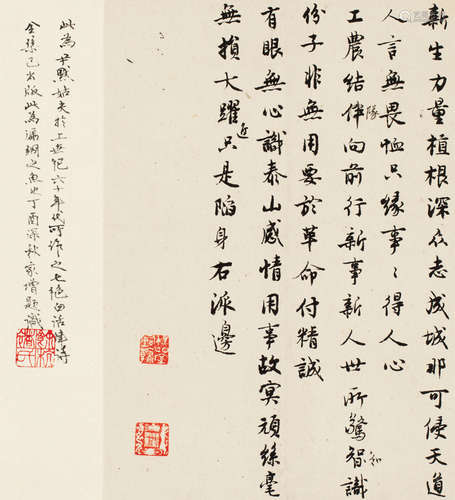 新生力量植根深众志成城那可侵天道
人言無畏恤只緣事〻得人心
工農結伴向前行新事新人世所驚智識
份子非無用要於革命付精誠
有眼無心識泰山感情用事故冥頑絲毫
無損大躍只是陷身右派邊
隊
知
近
此為尹默姑夫於上世紀六十年代所作之七絕白話律詩
全集已出版此為漏網之魚也丁酉深秋家增題識